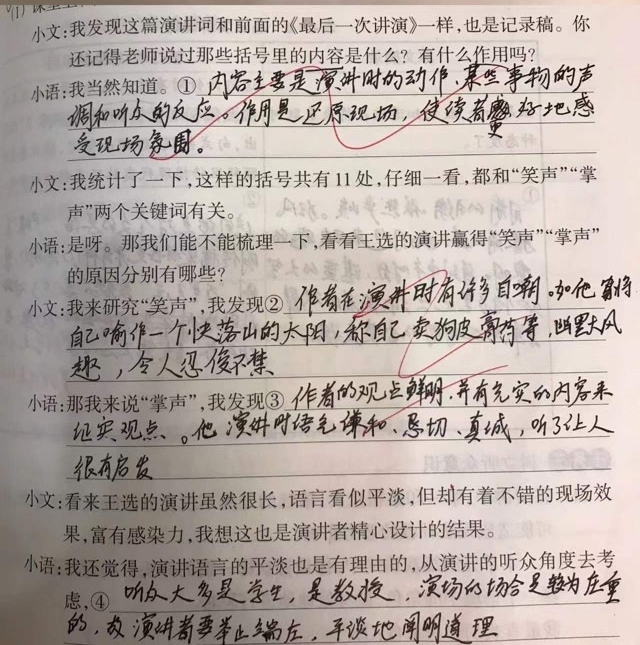 小文:我发现这篇演讲词和前面的《最后一次讲演》一样,也是记录稿。你
还记得老师说过那些括号里的内容是什么?有什么作用吗?
小语:我当然知道。① 内容主要是演讲时的动作、某些事物的声
调和听众的反应。作用是还原现场,使读者更好地感
受现场氛围。
小文:我统计了一下,这样的括号共有11处,仔细一看,都和“笑声”“掌
声”两个关键词有关。
小语:是呀。那我们能不能梳理一下,看看王选的演讲赢得“笑声”“掌声”
的原因分别有哪些?
小文:我来研究“笑声”,我发现② 作者在演讲时有许多自嘲。如他曾将
自己喻作一个快落山的太阳,称自己卖狗皮膏药等,幽默风
趣,令人忍俊不禁
小语:那我来说“掌声”,我发现③ 作者的观点鲜明,并有充实的内容来
证实观点。他演讲时语气谦和、恳切、真诚,听了让人
很有启发
小文:看来王选的演讲虽然很长,语言看似平淡,但却有着不错的现场效
果,富有感染力,我想这也是演讲者精心设计的结果。
小语:我还觉得,演讲语言的平淡也是有理由的,从演讲的听众角度去考
虑,④ 听众大多是学生,是教授,演场的场合是较为庄重
的,故演讲者要举止端庄,平谈地阐明道理